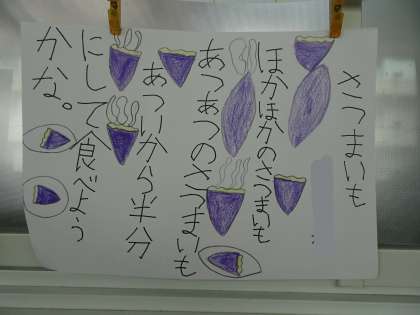 さつまいも
ほかほかのさつまいも
あつあつのさつまいも
あついから半分
にして食べよう
かな。